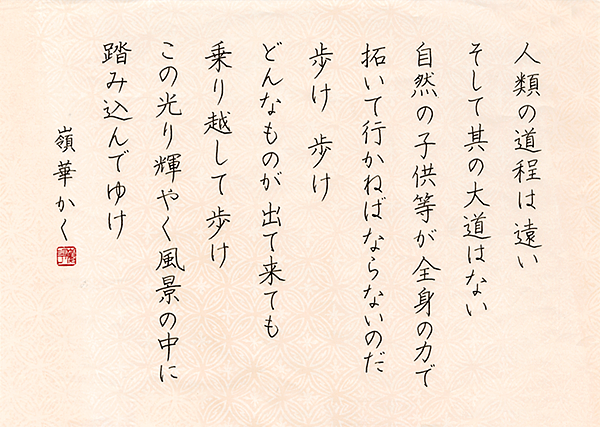 人類の道程は遠い
そして其の大道はない
自然の子供等が全身の力で
拓いて行かねばならないのだ
歩け 歩け
どんなものが出て来ても
乗り越して歩け
この光り輝やく風景の中に
踏み込んでゆけ
嶺華かく